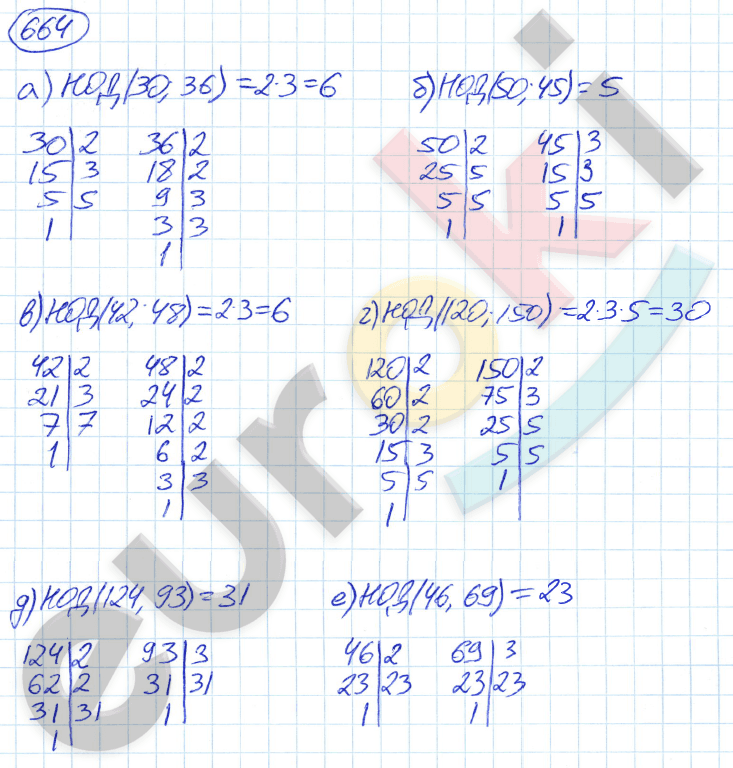 664
а) НОД(30; 36) = 2·3 = 6
30|2
15|3
5|5
1|
36|2
18|2
9|3
3|3
1|
б) НОД(50; 45) = 5
50|2
25|5
5|5
1|
45|3
15|3
5|5
1|
в) НОД(42; 48) = 2·3 = 6
42|2
21|3
7|7
1|
48|2
24|2
12|2
6|2
3|3
1|
г) НОД(120; 150) = 2·3·5 = 30
120|2
60|2
30|2
15|3
5|5
1|
150|2
75|3
25|5
5|5
1|
д) НОД(124, 93) = 31
124|2
62|2
31|31
1|
93|3
31|31
1|
е) НОД(46, 69) = 23
46|2
23|23
1|
69|3
23|23
1|
euroki